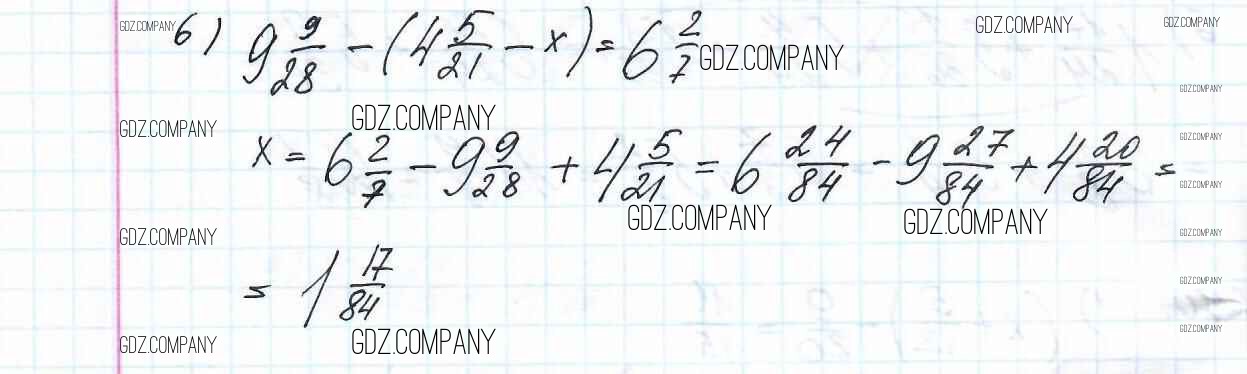 GDZ.COMPANY б) 9 9/28 - (4 5/21 - x) = 6 2/7 GDZ.COMPANY GDZ.COMPANY GDZ.COMPANY
GDZ.COMPANY
GDZ.COMPANY GDZ.COMPANY
x = 6 2/7 - 9 9/28 + 4 5/21 = 6 24/84 - 9 27/84 + 4 20/84 = GDZ.COMPANY
GDZ.COMPANY
GDZ.COMPANY GDZ.COMPANY
GDZ.COMPANY GDZ.COMPANY
= 1 17/84 GDZ.COMPANY
GDZ.COMPANY GDZ.COMPANY GDZ.COMPANY